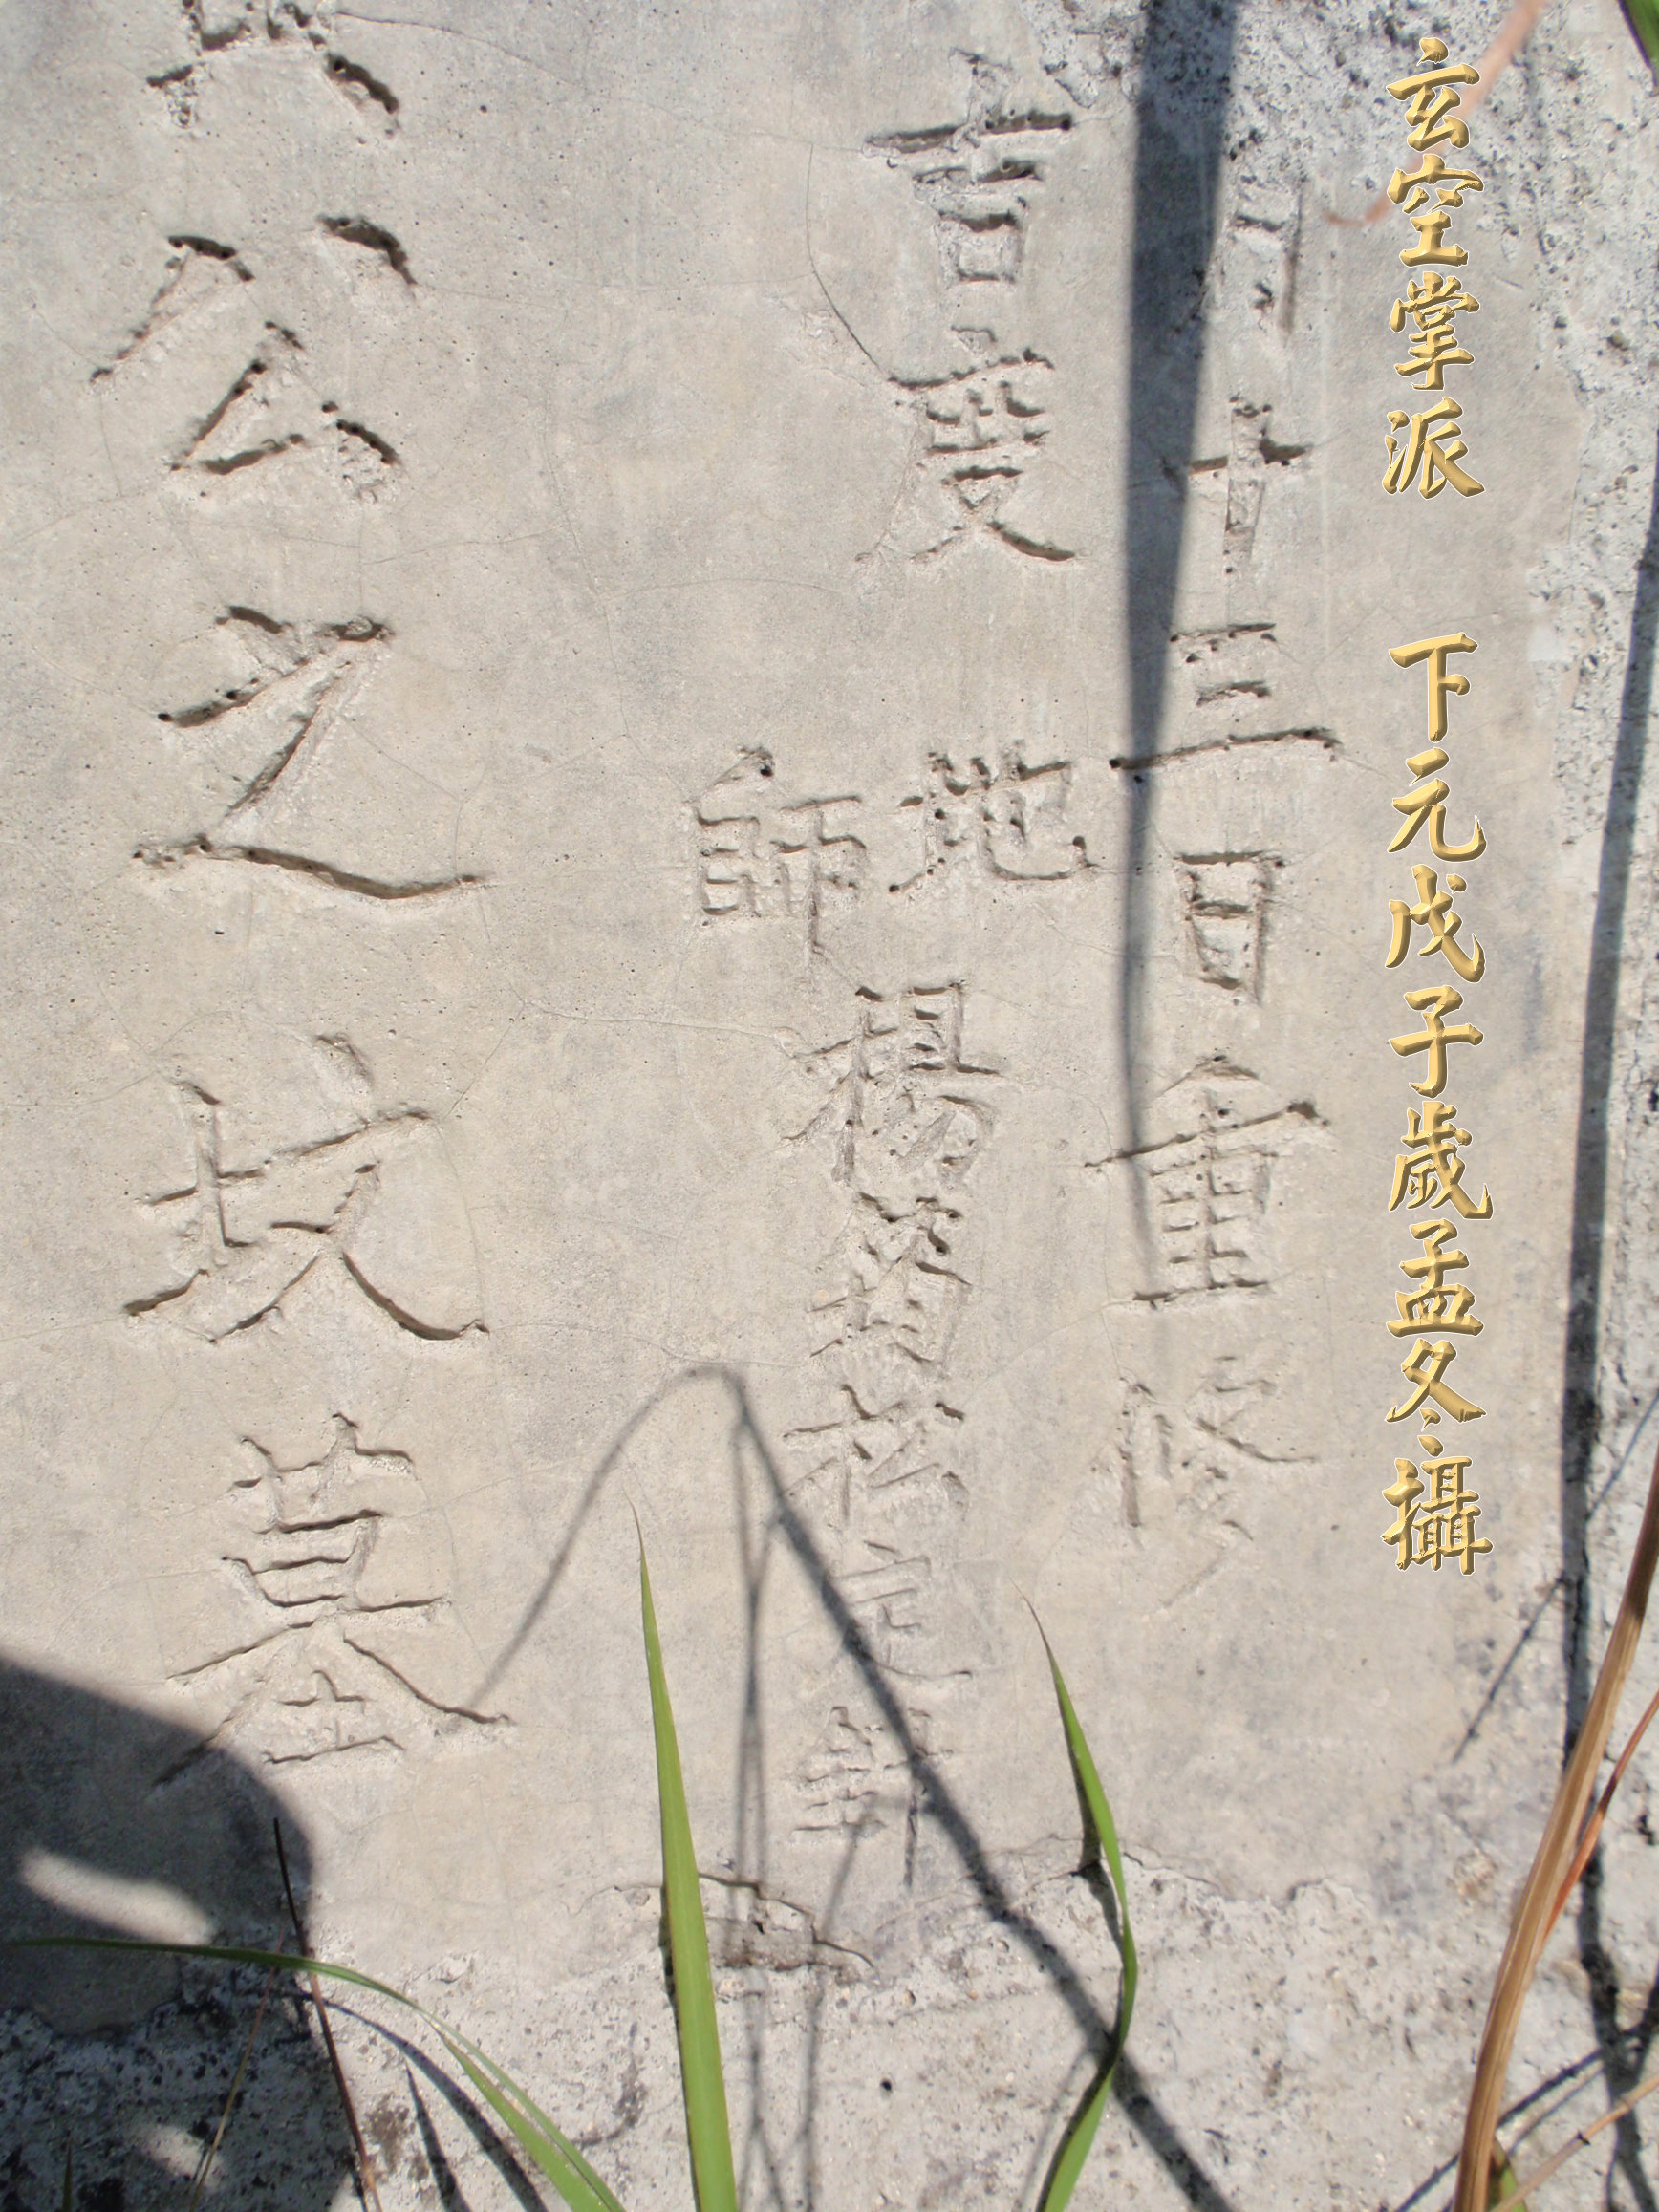 玄空掌派 下元戊子歲孟冬攝
月十三日重修
吉度
地師 楊筠松定針
公之坟墓